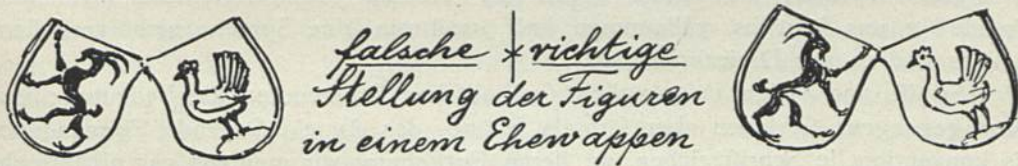 falsche * richtige
Stellung der Figuren
in einem Ehewappen